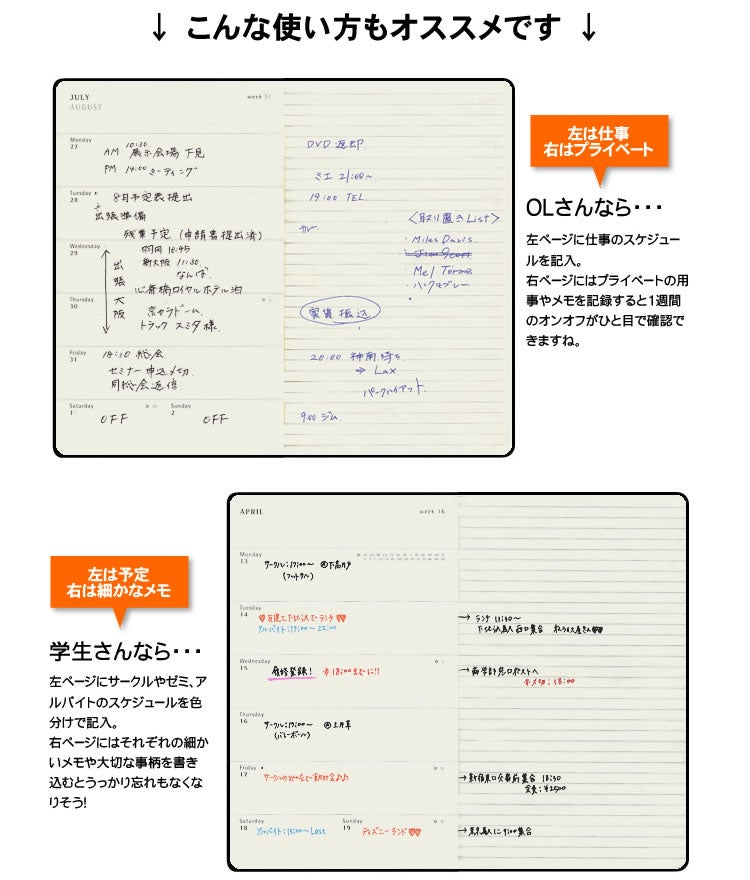 ↓ こんな使い方もオススメです ↓
JULY
AUGUST
week 31
Monday
27
AM 10:30 展示会場 下見
PM 14:00 ミーティング
Tuesday
28
8月予定表提出
出張準備
残業予定 (申請書提出済)
Wednesday
29
羽田 10:45
新大阪 11:30
なんば
心斎橋ロイヤルホテル泊
出張大阪
Thursday
30
京セラドーム
トラック スミダ様
Friday
31
18:30 総会
セミナー申込〆切
月松会返信
Saturday
1
OFF
Sunday
2
OFF
DVD 返却
ミエ 21:00~
19:00 TEL
<取り置きList>
・Miles Davis
・Mel Torme
・ハンクモブレー
家賃振込
20:00 神南待ち
⇒ Lax
パークハイアット
9:00 ジム
左は仕事
右はプライベート
OLさんなら・・・
左ページに仕事のスケジュー
ルを記入。
右ページにはプライベートの用
事やメモを記録すると1週間
のオンオフがひと目で確認で
きますね。
左は予定
右は細かなメモ
学生さんなら・・・
左ページにサークルやゼミ、ア
ルバイトのスケジュールを色
分けで記入。
右ページにはそれぞれの細か
いメモや大切な事柄を書き
込むとうっかり忘れもなくな
りそう!
APRIL
week 16
Monday
13
サークル:17:00~ @下高井戸
(フットサル)
Tuesday
14
♡有達と下北沢でランチ♡♡
アルバイト:17:00~22:00
→ ランチ 11:30~
下北沢駅 西口集合
Wednesday
15
履修登録! ※18:00までに!!
→ 商学部 窓口ポストへ
※〆切:18:00
Thursday
16
サークル:17:00~ @上井草
(バレーボール)
Friday
17
サークルのみんなで飲み会♪♪
→ 新宿東口交番前集合 18:30
会費:¥2500
Saturday
18
アルバイト:15:00~Last
Sunday
19
ディズニーランド♡♡
→ 東京駅に9:00集合